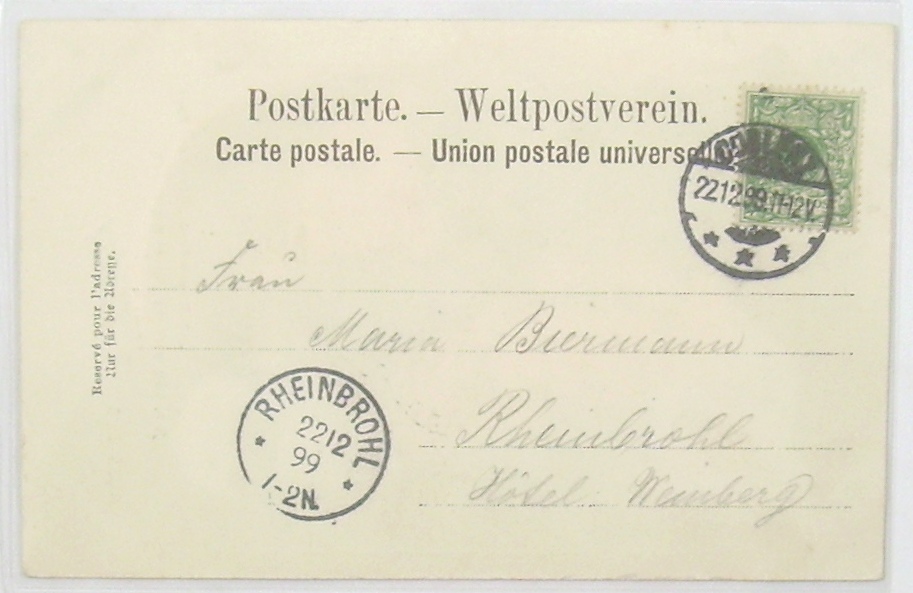 Postkarte. — Weltpostverein.
Carte postale. — Union postale universelle
COBLENZ
22 12 99. 11-12 V.
Reservé pour l'adresse
Nur für die Adresse.
Frau
Maria Biermann
Rheinbrohl
Hôtel Weinberg
RHEINBROHL
22 12
99
1-2N.